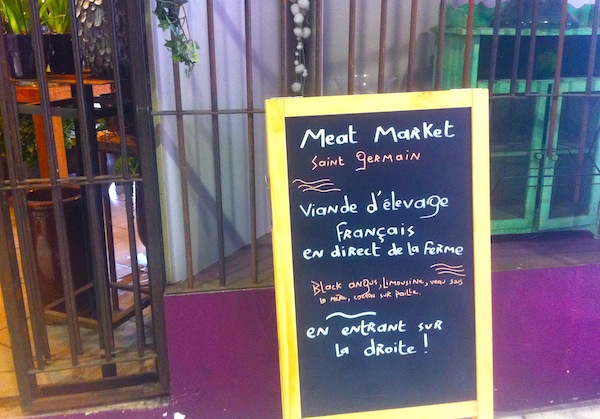 Meat Market
Saint Germain
Viande d'élevage
Français
en direct de la ferme
Black angus, Limousine, veau sous
la mère, cochon sur paille.
en entrant sur
la droite !